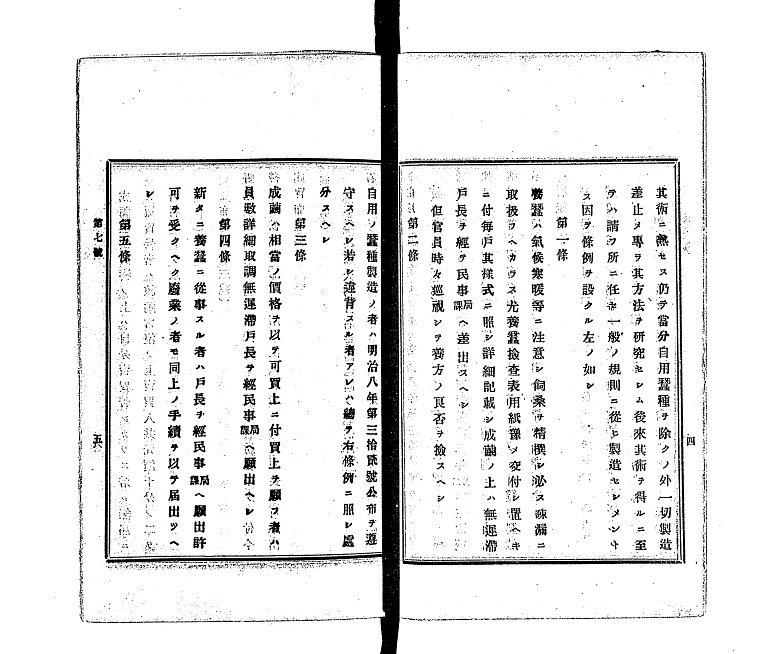 四
其術ニ熟セス仍テ當分自用蠶種ヲ除クノ外一切製造
差止メ專ラ其方法ヲ研究セシム後來其術ヲ得ルニ至
ラハ請フ所ニ任セ一般ノ規則ニ從ヒ製造セシメント
ス因テ條例ヲ設クル左ノ如シ
第一條
養蠶ハ氣候寒暖等ニ注意シ飼桑ヲ精撰シ必ス疎漏ニ
取扱フヘカラス尤養蠶檢查表用紙豫メ交付シ置ヘキ
ニ付每戶其樣式ニ照シ詳細記載シ成繭ノ上ハ無遲滯
戶長ヲ經テ民事局課ヘ差出スヘシ
但官員時々巡視シテ養方ノ良否ヲ撿スヘシ
第二條
自用ノ蠶種製造ノ者ハ明治八年第三拾貳號公布ヲ遵
守スヘシ若シ違背スル者アレハ總テ右條例ニ照シ處
分スヘシ
第三條
成繭ハ相當ノ價格ヲ以テ可買上ニ付買上ヲ願フ者ハ
員數詳細取調無遲滯戶長ヲ經民事局課ヘ願出ヘシ
第四條
新タニ養蠶ニ從事スル者ハ戶長ヲ經民事局課ヘ願出許
可ヲ受クヘク廢業ノ者モ同上ノ手續ヲ以テ届出ツヘ
シ
第五條
第七號
五